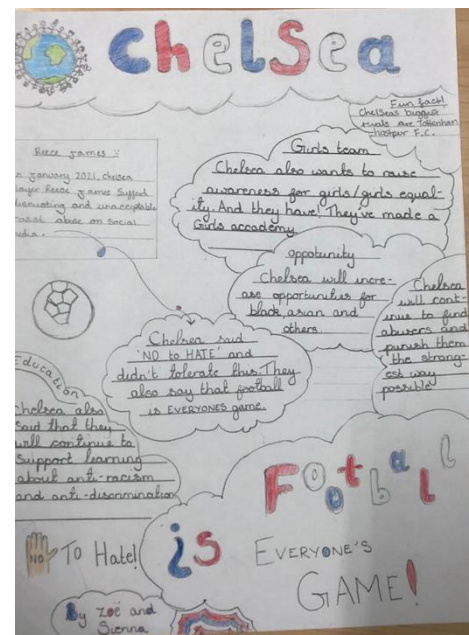 Chelsea
Fun fact!
Chelseas biggest
rivals are Tottenham
hostpur F.C.
Reece James
January 2021, Chelsea
Reece James
and unacceptable
abuse on social
Girls team
Chelsea also wants to raise
awareness for girls/girls equal-
ity. And they have! They've made a
Girls accademy
oppotunity
Chelsea will incre-
ase opportunities for
black, asian and
others.
Chelsea
will cont-
to find
abusers and
punush them
the strang-
est way
possible
Chelsea said
'NO to HATE' and
didn't tolerate this. They
also say that football
is EVERYONES game.
Education
Chelsea also
said that they
will continue to
support learning
about anti-racism
and anti-discrimination
NO
To Hate!
Football
is EVERYONE'S
GAME!
By Zoë and
Sienna